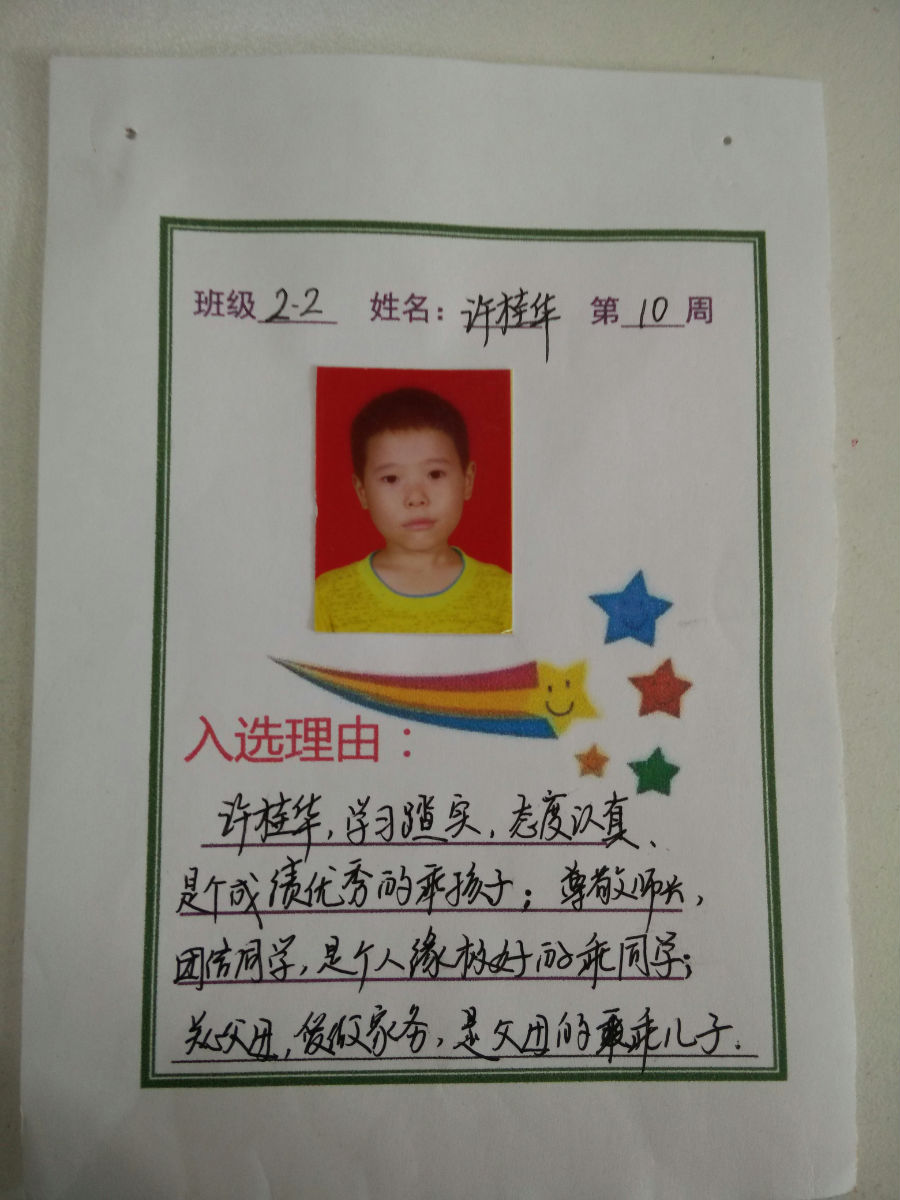 班级 2-2 姓名：许桂华 第 10 周
入选理由：
许桂华，学习踏实，态度认真、
是个成绩优秀的乖孩子；尊敬师长，
团结同学，是个人缘极好的乖同学；
父母，做家务，是父母的乖乖儿子.